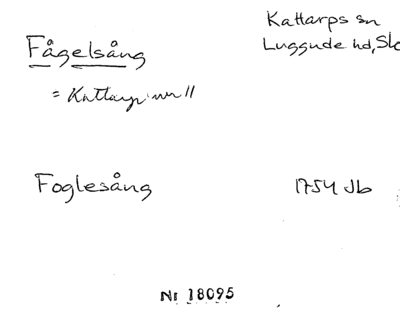 Fågelsång
Kattarps sn
Luggude hd, Sk
= Kattarp nr 11
Foglesång
1754 Jb
Nr 18095